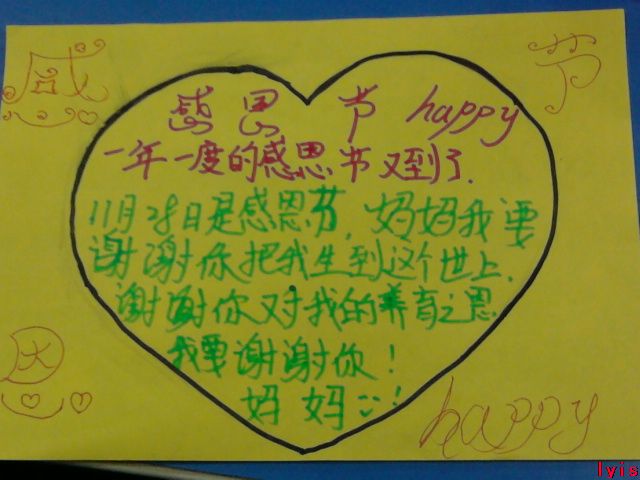 感 节
感 恩 节 happy
一年一度的感恩节又到了.
11月28日是感恩节,妈妈我要
谢谢你把我生到这个世上.
谢谢你对我的养育之恩
我要谢谢你!
妈妈!
恩 happy
lyis